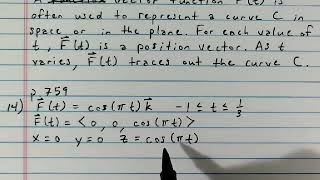 vector function F⃗(t) is
often used to represent a curve C in
space or in the plane. For each value of
t, F⃗(t) is a position vector. As t
varies, F⃗(t) traces out the curve C.
p.759
14) F⃗(t) = cos(πt) k⃗   -1 ≤ t ≤ 1/3
F⃗(t) = < 0, 0, cos(πt) >
x=0  y=0  z=cos(πt)